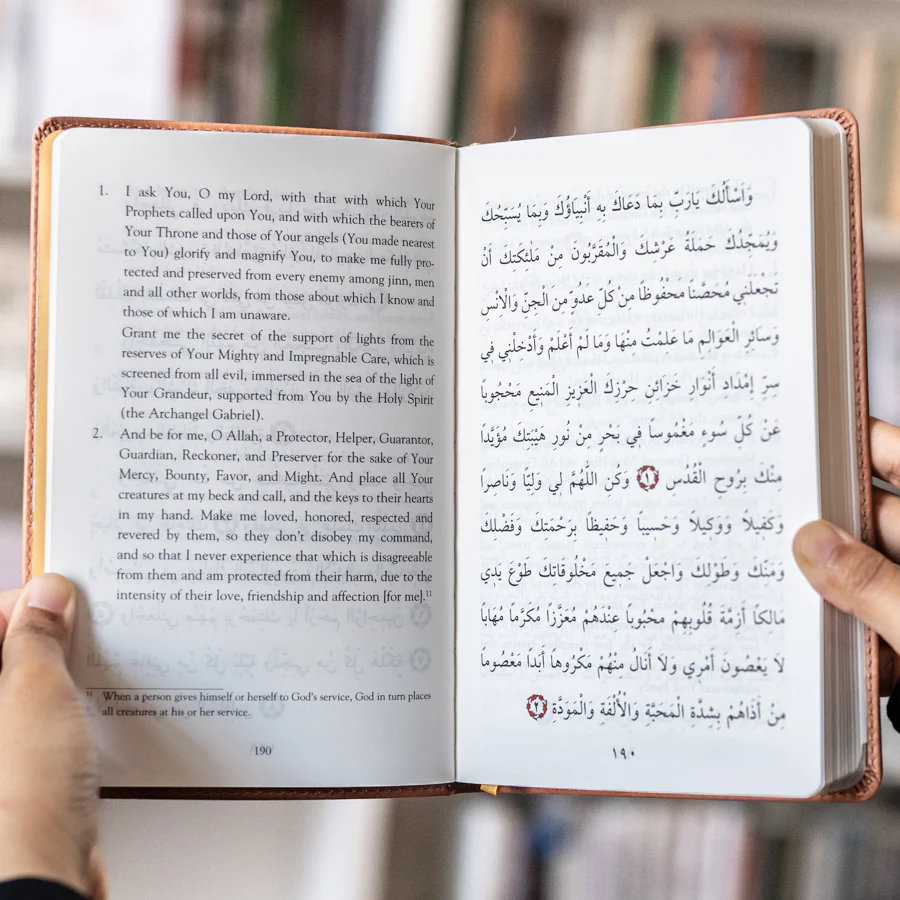 1. I ask You, O my Lord, with that with which Your
Prophets called upon You, and with which the bearers of
Your Throne and those of Your angels (You made nearest
to You) glorify and magnify You, to make me fully pro-
tected and preserved from every enemy among jinn, men
and all other worlds, from those about which I know and
those of which I am unaware.
Grant me the secret of the support of lights from the
reserves of Your Mighty and Impregnable Care, which is
screened from all evil, immersed in the sea of the light of
Your Grandeur, supported from You by the Holy Spirit
(the Archangel Gabriel).
2. And be for me, O Allah, a Protector, Helper, Guarantor,
Guardian, Reckoner, and Preserver for the sake of Your
Mercy, Bounty, Favor, and Might. And place all Your
creatures at my beck and call, and the keys to their hearts
in my hand. Make me loved, honored, respected and
revered by them, so they don't disobey my command,
and so that I never experience that which is disagreeable
from them and am protected from their harm, due to the
intensity of their love, friendship and affection [for me].¹¹
¹¹ When a person gives himself or herself to God's service, God in turn places
all creatures at his or her service.
190
وَأَسْأَلُكَ يَارَبِّ بِمَا دَعَاكَ بِهِ أَنْبِيَاؤُكَ وَبِمَا يُسَبِّحُكَ
وَيُمَجِّدُكَ حَمَلَةُ عَرْشِكَ وَالْمُقَرَّبُونَ مِنْ مَلَٰئِكَتِكَ أَنْ
تَجْعَلَنِي مُحَصَّنا مَحْفُوظًا مِنْ كُلِّ عَدُوٍّ مِنَ الْجِنِّ وَالْاِنْسِ
وَسَائِرِ الْعَوَالِمِ مَا عَلِمْتُ مِنْهَا وَمَا لَمْ أَعْلَمْ وَأَدْخِلْنِي فِي
سِرِّ إِمْدَادِ أَنْوَارِ خَزَائِنِ حِرْزِكَ الْعَزِيزِ الْمَنِيعِ مَحْجُوبًا
عَنْ كُلِّ سُوءٍ مَغْمُوساً فِي بَحْرِ مِنْ نُورِ هَيْبَتِكَ مُؤَيَّدًا
مِنْكَ بِرُوحِ الْقُدُسِ ١ وَكُنِ اللَّهُمَّ لِي وَلِيًّا وَنَاصِرًا
وَكَفِيلاً وَوَكِيلاً وَحَسِيبًا وَحَفِيظًا بِرَحْمَتِكَ وَفَضْلِكَ
وَمَنِّكَ وَطَوْلِكَ وَاجْعَلْ جَمِيعَ مَخْلُوقَاتِكَ طَوْعَ يَدِي
مَالِكًا أَزِمَّةَ قُلُوبِهِمْ مَحْبُوباً عِنْدَهُمْ مُعَزَّزًا مُكَرَّمًا مُهَابًا
لاَ يَعْصُونَ أَمْرِي وَلاَ أَنَالُ مِنْهُمْ مَكْرُوهًا أَبَدًا مَعْصُوماً
مِنْ أَذَاهُمْ بِشِدَّةِ الْمَحَبَّةِ وَالْأُلْفَةِ وَالْمَوَدَّةِ ٢
١٩٠